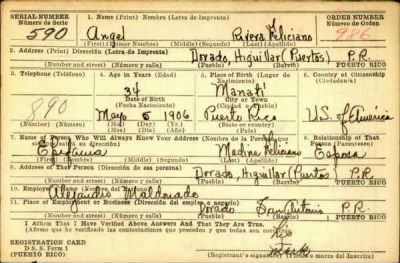 SERIAL NUMBER 1. Name (Print) Nombre (Letra de Imprenta) ORDER NUMBER
Número de Serie Número de Orden
590 Angel Rivera Feliciano 986
(First) (Primer Nombre) (Middle) (Segundo) (Last) (Apellido)
2. Address (Print) Dirección (Letra de Imprenta)
Dorado, Higuillar (Puertos) P.R.
Número y calle) (Pueblo) (Barrio) PUERTO RICO
3. Telephone (Teléfono) 4. Age in Years (Edad) 5. Place of Birth (Lugar de Nacimiento) 6. Country of Citizenship (Ciudadanía)
34 Manatí
Date of Birth (Fecha Nacimiento) City or Town (Ciudad o Pueblo)
890 Mayo 5 1906 Puerto Rico U.S. of America
(Mo.) (Day) (Yr.) State or country
(Mes) (Día) (Año) (Estado o País)
7. Name of Person Who Will Always Know Your Address (Nombre de la Persona 8. Relationship of That Person (Parentesco)
su dirección)
Medina Feliciano Esposa
(Middle) (Segundo) (Last) (Apellido)
9. Address of That Person (Dirección de esa persona)
Dorado, Higuillar (Puertos) P.R.
Número y calle) (Pueblo) (Barrio) PUERTO RICO
10. Employer's Name
Alejandro Maldonado
11. Place of Employment or Business (Dirección del empleo o negocio)
Dorado San Antonio P.R.
(Número y calle) (Pueblo) (Barrio) PUERTO RICO
I Affirm That I Have Verified Above Answers And That They Are True.
(Afirmo que he verificado las contestaciones que preceden y que todas son
REGISTRATION CARD
D. S. S. Form 1
(PUERTO RICO) (Registrant's signature) (Firma del